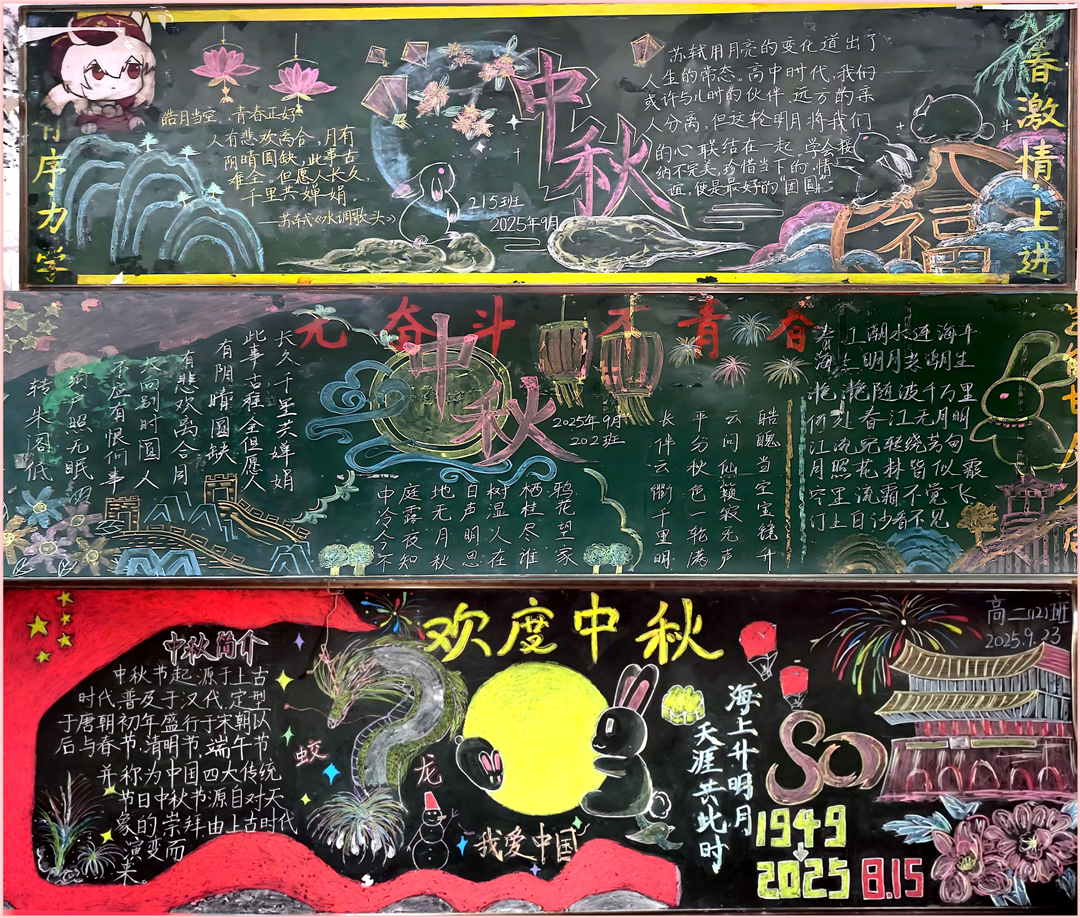 有序力学
皓月当空，青春正好
人有悲欢离合，月有
阴晴圆缺，此事古
难全。但愿人长久，
千里共婵娟
——苏轼《水调歌头》
中秋
215班
2025年9月
苏轼用月亮的变化道出了
人生的常态。高中时代，我们
或许与儿时的伙伴、远方的亲
人分离，但这轮明月将我们
的心联结在一起。学会接
纳不完美，珍惜当下的情
面，便是最好的“团圆”
福
春激情，上进
无奋斗 不青春
长久千里共婵娟
此事古难全但愿人
有阴晴圆缺
有悲欢离合月
长向别时圆人
不应有恨何事
户照无眠
转朱阁低
中秋
2025年9月
202班
鸦花望家
栖桂尽谁
树湿人在
日声明思
地无月秋
庭露夜知
中冷今不
皓魄当空宝镜升
云间仙籁寂无声
平分秋色一轮满
长伴云衢千里明
春江潮水连海平
海上明月共潮生
滟滟随波千万里
何处春江无月明
江流宛转绕芳甸
月照花林皆似霰
空里流霜不觉飞
汀上白沙看不见
欢度中秋
高二(12)班
2025.9.23
中秋简介
中秋节起源于上古
时代,普及于汉代,定型
于唐朝初年,盛行于宋朝以
后与春节,清明节,端午节
并称为中国四大传统
节日中秋节源自对天
象的崇拜由上古时代
演变而
来。
蛟
龙
我爱中国
海上升明月
天涯共此时
80
1949
2025 8.15